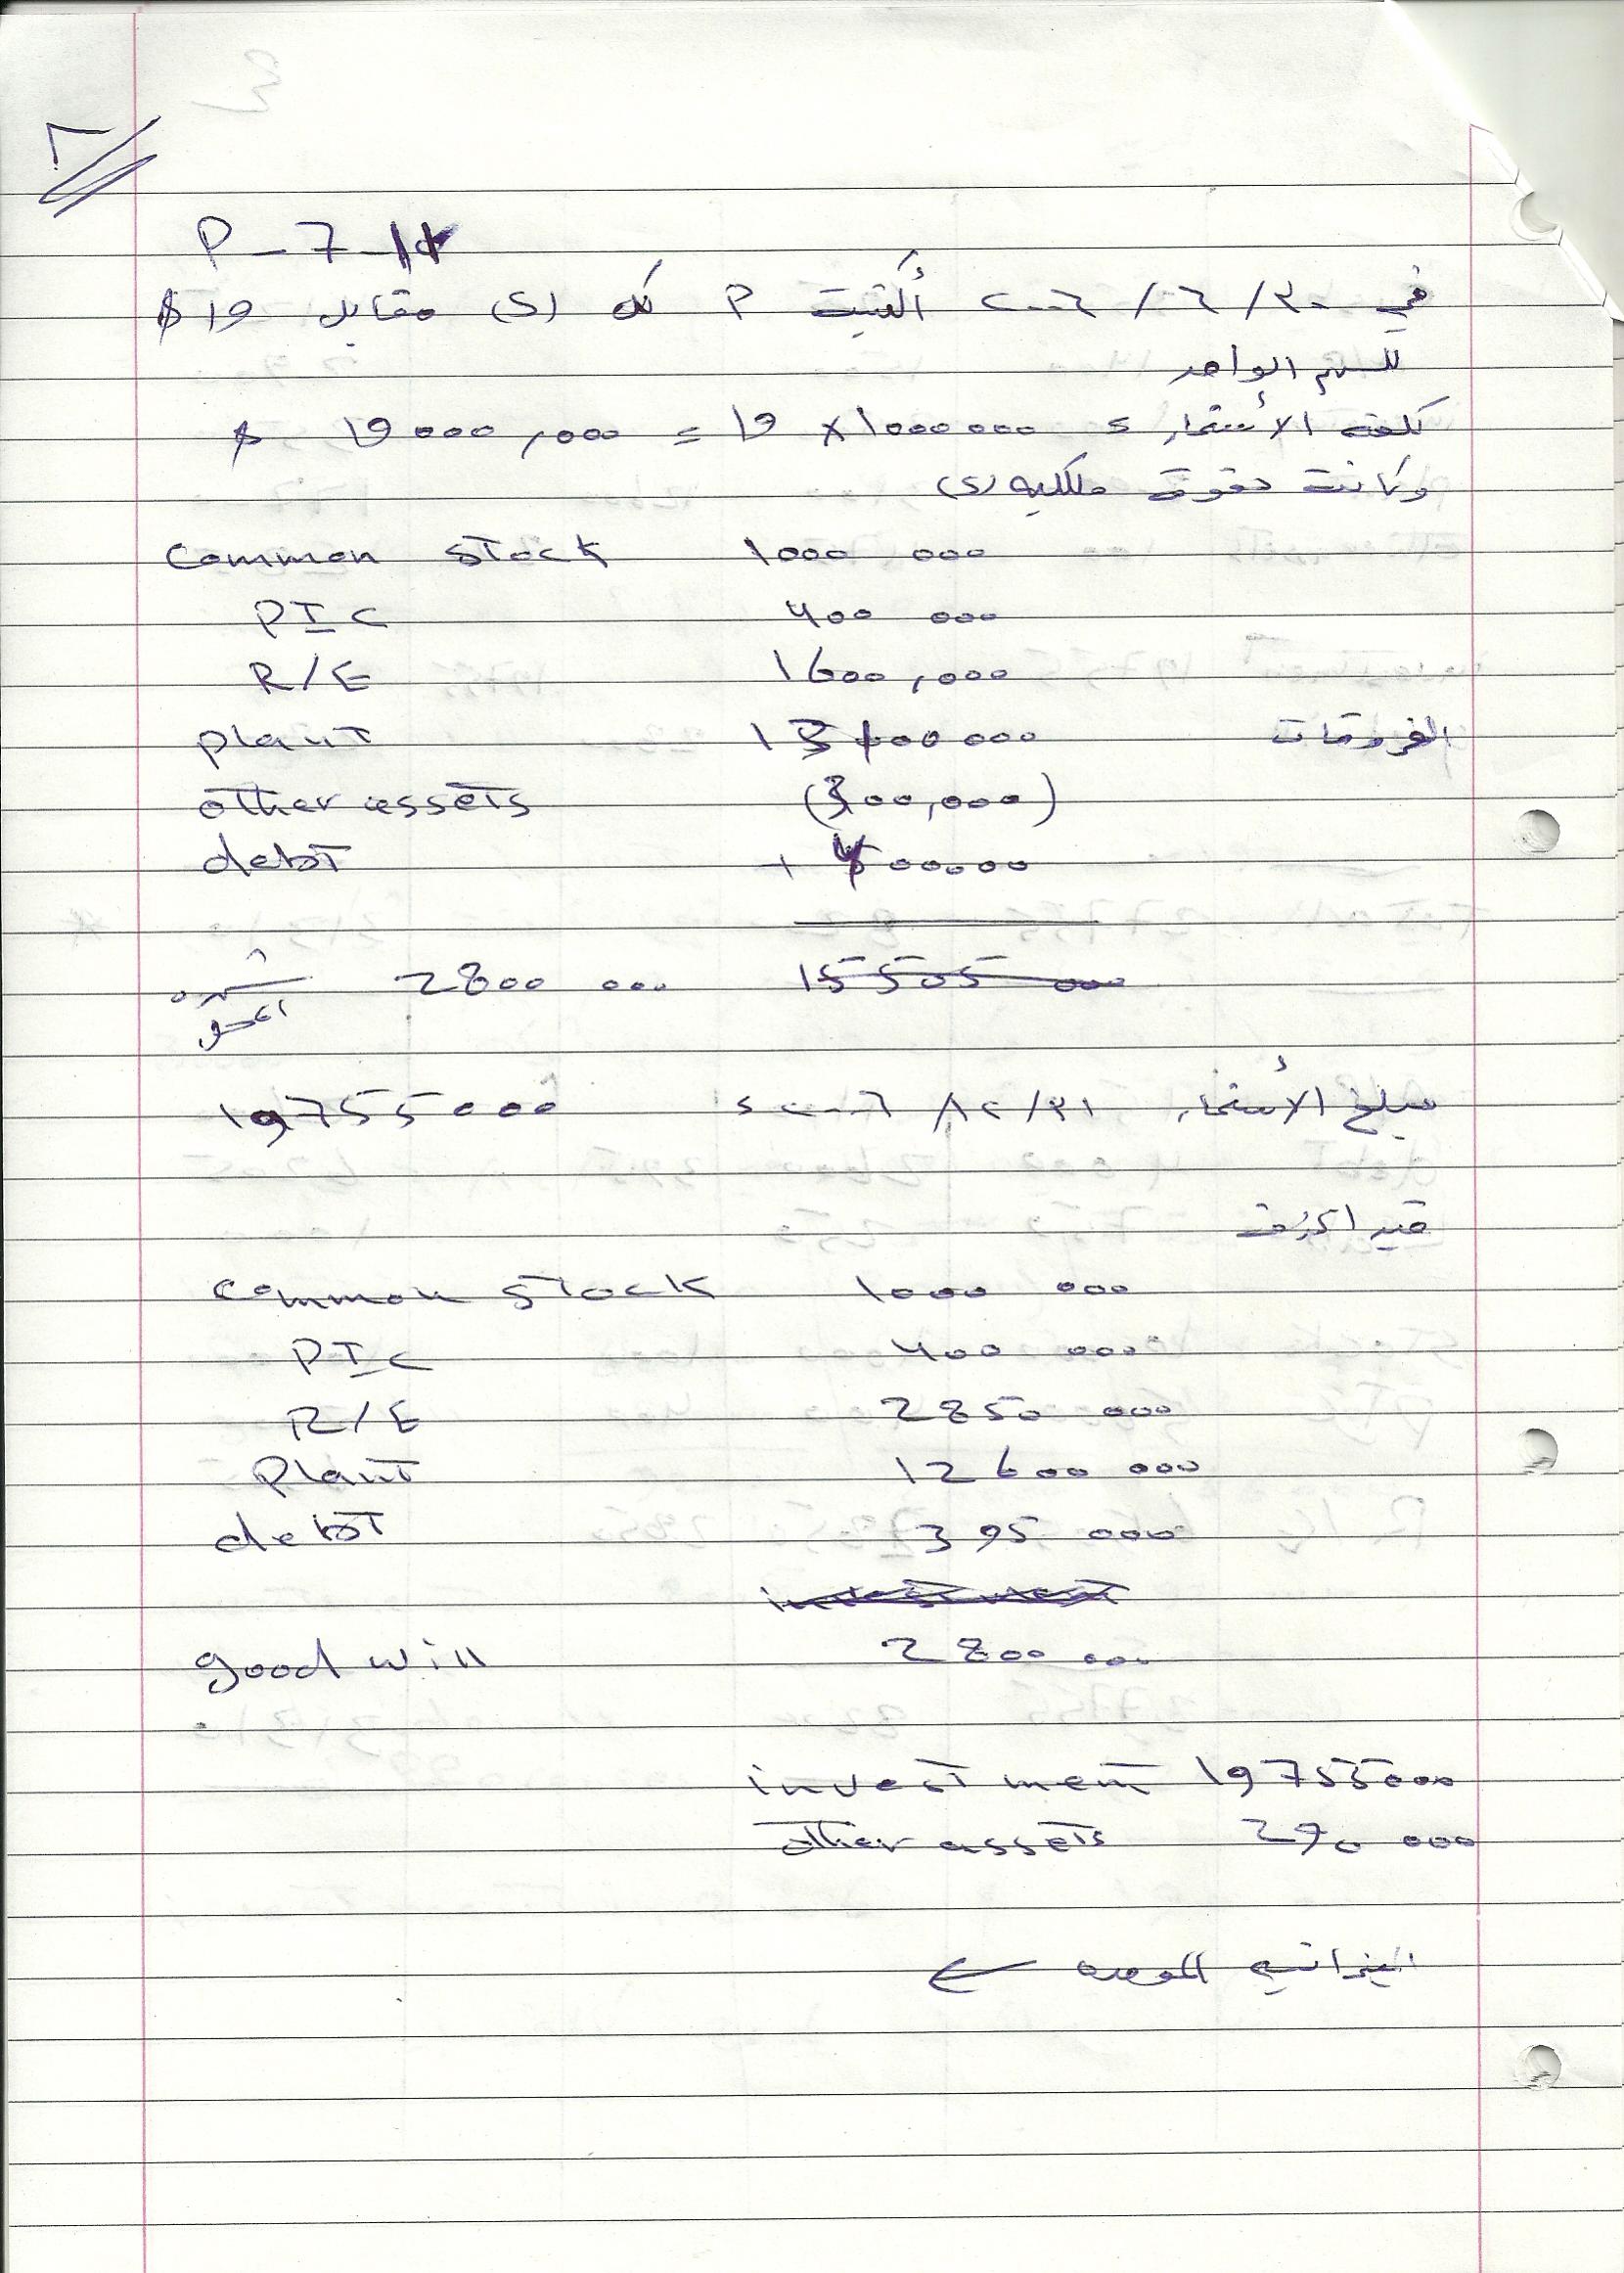 ٢
P - 7 - 11
في ٣٠ / ٦ / ٢٠٠٦ أقتنيت P كل (S) مقابل ١٩ $
للسهم الواحد
تكلفه الأستثمار = ١٠٠٠٠٠٠ × ١٩ = ١٩٠٠٠,٠٠٠ $
وكانت حقوق ملكيه (S)
common stock 1000 000
PIC 400 000
R/E 1600,000
الفروقات
plant 13 400 000
other assets (300,000)
debt + 400000
شهرة المحل 2800 000 15505 000
مبلغ الأستثمار ٣١/ ١٢/ ٢٠٠٦ = 19755000
قيد الحذف
common stock 1000 000
PIC 400 000
R/E 2850 000
plant 12600 000
debt 395 000
investment
good will 2800 000
investment 19755000
other assets 270 000
الميزانيه الموحده ←